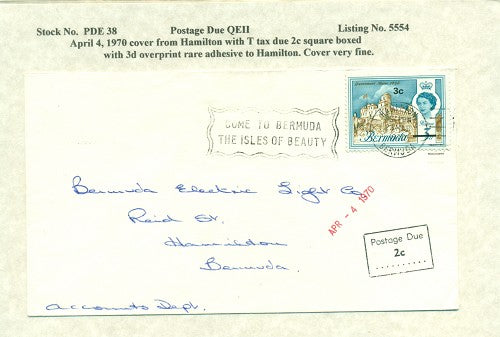 Stock No. PDE 38 Postage Due QEII Listing No. 5554
April 4, 1970 cover from Hamilton with T tax due 2c square boxed
with 3d overprint rare adhesive to Hamilton. Cover very fine.
COME TO BERMUDA
THE ISLES OF BEAUTY
3c
Bermuda
BERMUDA
Bermuda Electric Light Co
Reid St.
Hamilton
Bermuda.
Accounts Dept.
APR - 4 1970
Postage Due
2c